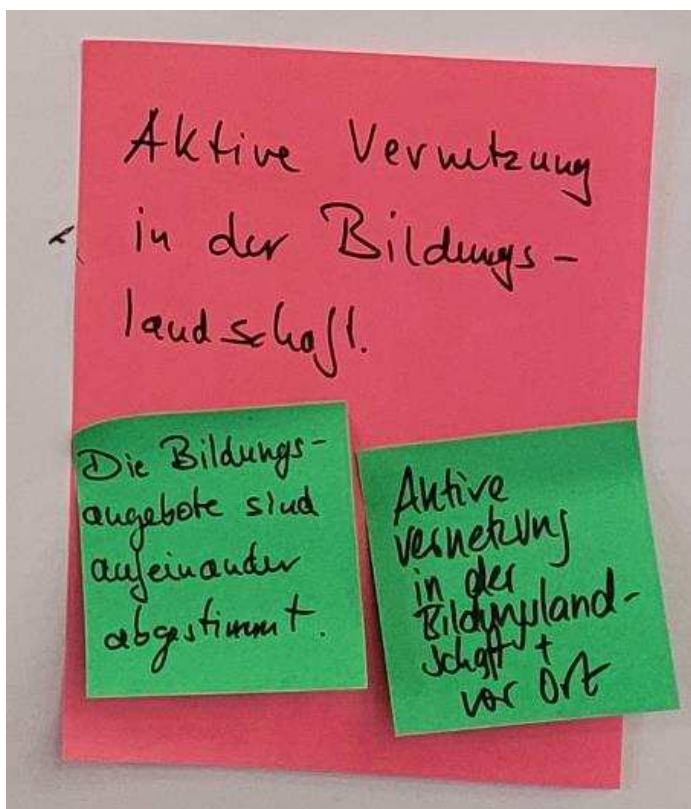 Aktive Vernetzung
in der Bildungs-
landschaft.
Die Bildungs-
angebote sind
aufeinander
abgestimmt.
Aktive
vernetzung
in der
Bildungsland-
schaft +
vor Ort